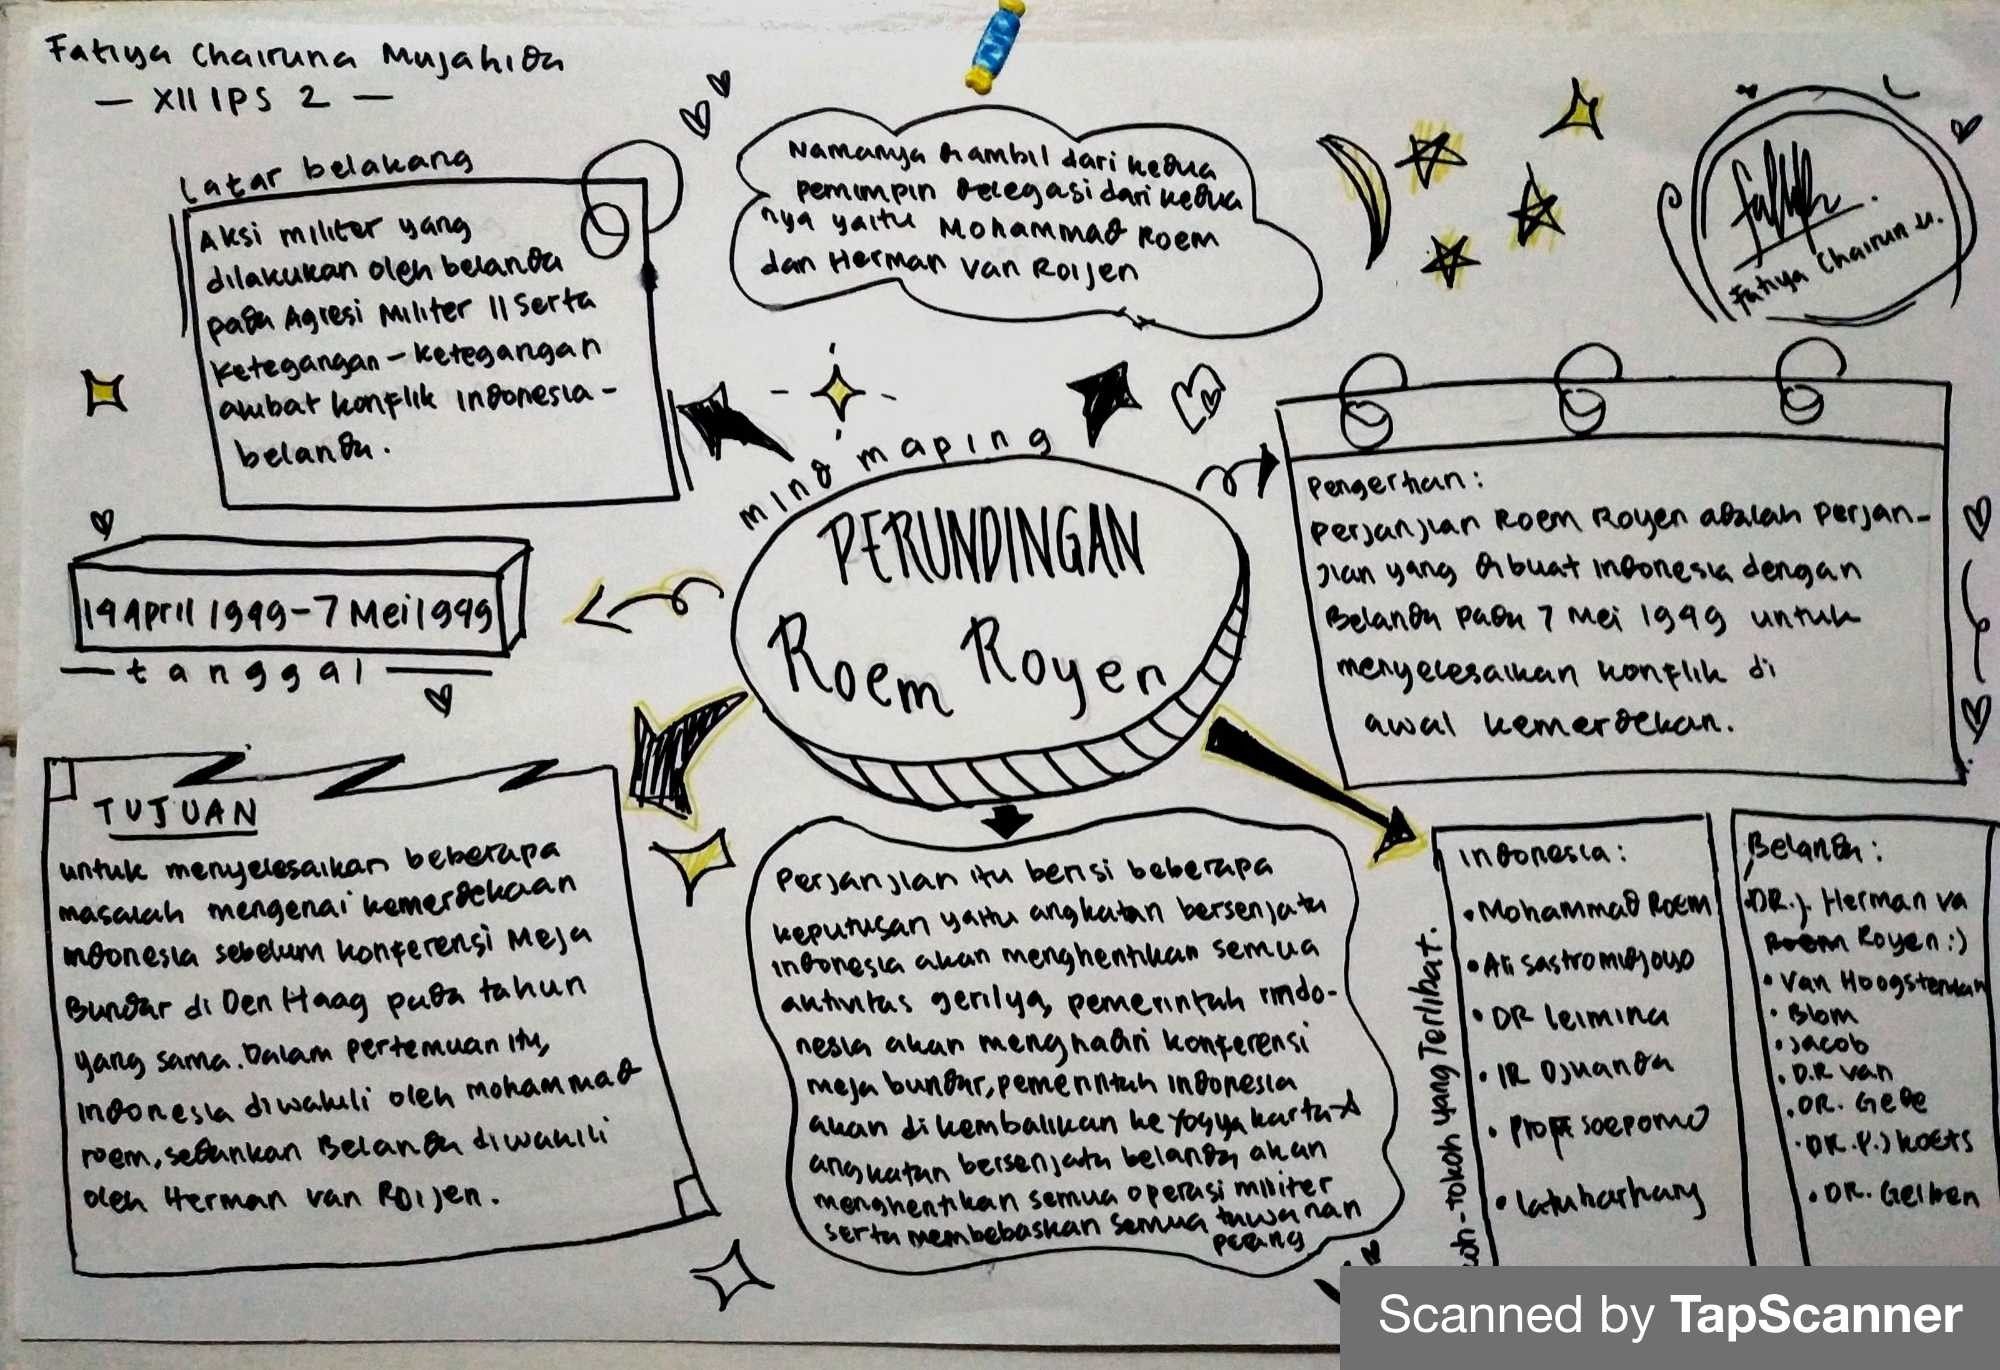 Fatiya Chairuna Mujahida
— XII IPS 2 —
Latar belakang
Aksi militer yang
dilakukan oleh belanda
pada Agresi Militer II serta
Ketegangan-Ketegangan
akibat konflik Indonesia-
belanda.
Namanya diambil dari kedua
pemimpin delegasi dari kedua
nya yaitu Mohammad Roem
dan Herman van Roijen
Fatiya Chairun M.
mind maping
PERUNDINGAN
Roem Royen
Pengertian:
Perjanjian Roem Royen adalah Perjan-
jian yang dibuat Indonesia dengan
Belanda pada 7 Mei 1949 untuk
menyelesaikan konflik di
awal kemerdekan.
14 April 1949-7 Mei 1949
— tanggal —
TUJUAN
untuk menyelesaikan beberapa
masalah mengenai kemerdekaan
Indonesia sebelum konferensi Meja
Bundar di Den Haag pada tahun
yang sama. Dalam pertemuan itu,
Indonesia diwakili oleh mohammad
roem, sedankan Belanda diwakili
oleh Herman van Roijen.
Perjanjian itu berisi beberapa
keputusan yaitu angkatan bersenjata
indonesia akan menghentikan semua
aktivitas gerilya, pemerintah indo-
nesia akan menghadiri konferensi
meja bundar, pemerintah indonesia
akan di kembalikan ke Yogyakarta &
angkatan bersenjata belanda akan
menghentikan semua operasi militer
serta membebaskan semua tawanan
perang
Tokoh-tokoh yang Terlibat.
Indonesia:
• Mohammad Roem
• Ali sastromidjoyo
• DR leimina
• IR Djuanda
• Prof soepomo
• latuharhary
Belanda:
• DR. J. Herman va
Roem Royen :)
• Van Hoogstentan
• Blom
• Jacob
• D.R van
• DR. Gede
• DR. P.J koets
• DR. Gelben
Scanned by TapScanner